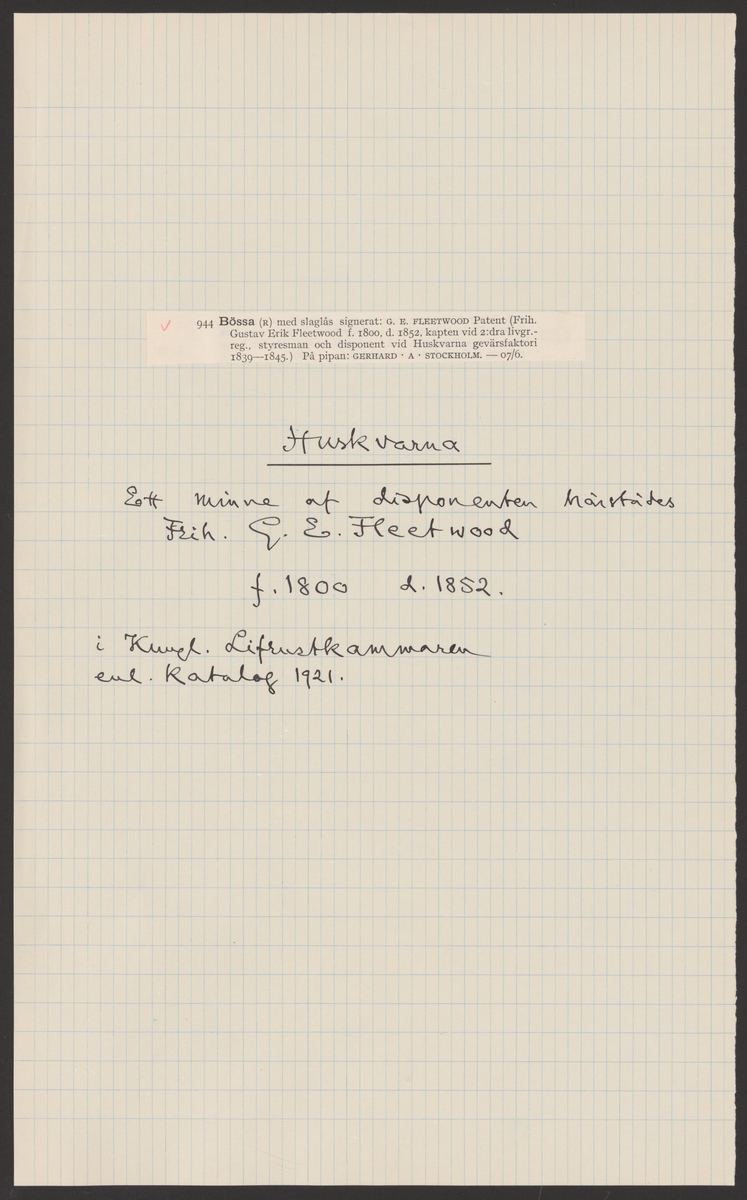 944 Bössa (R) med slaglås signerat: G. E. FLEETWOOD Patent (Frih.
Gustav Erik Fleetwood f. 1800, d. 1852, kapten vid 2:dra livgr.-
reg., styresman och disponent vid Huskvarna gevärsfaktori
1839—1845.) På pipan: GERHARD · A · STOCKHOLM. — 07/6.
Huskvarna
Ett minne af disponenten härstädes
Frih. G. E. Fleetwood
f. 1800 d. 1852.
i Kungl. Lifrustkammaren
enl. Katalog 1921.